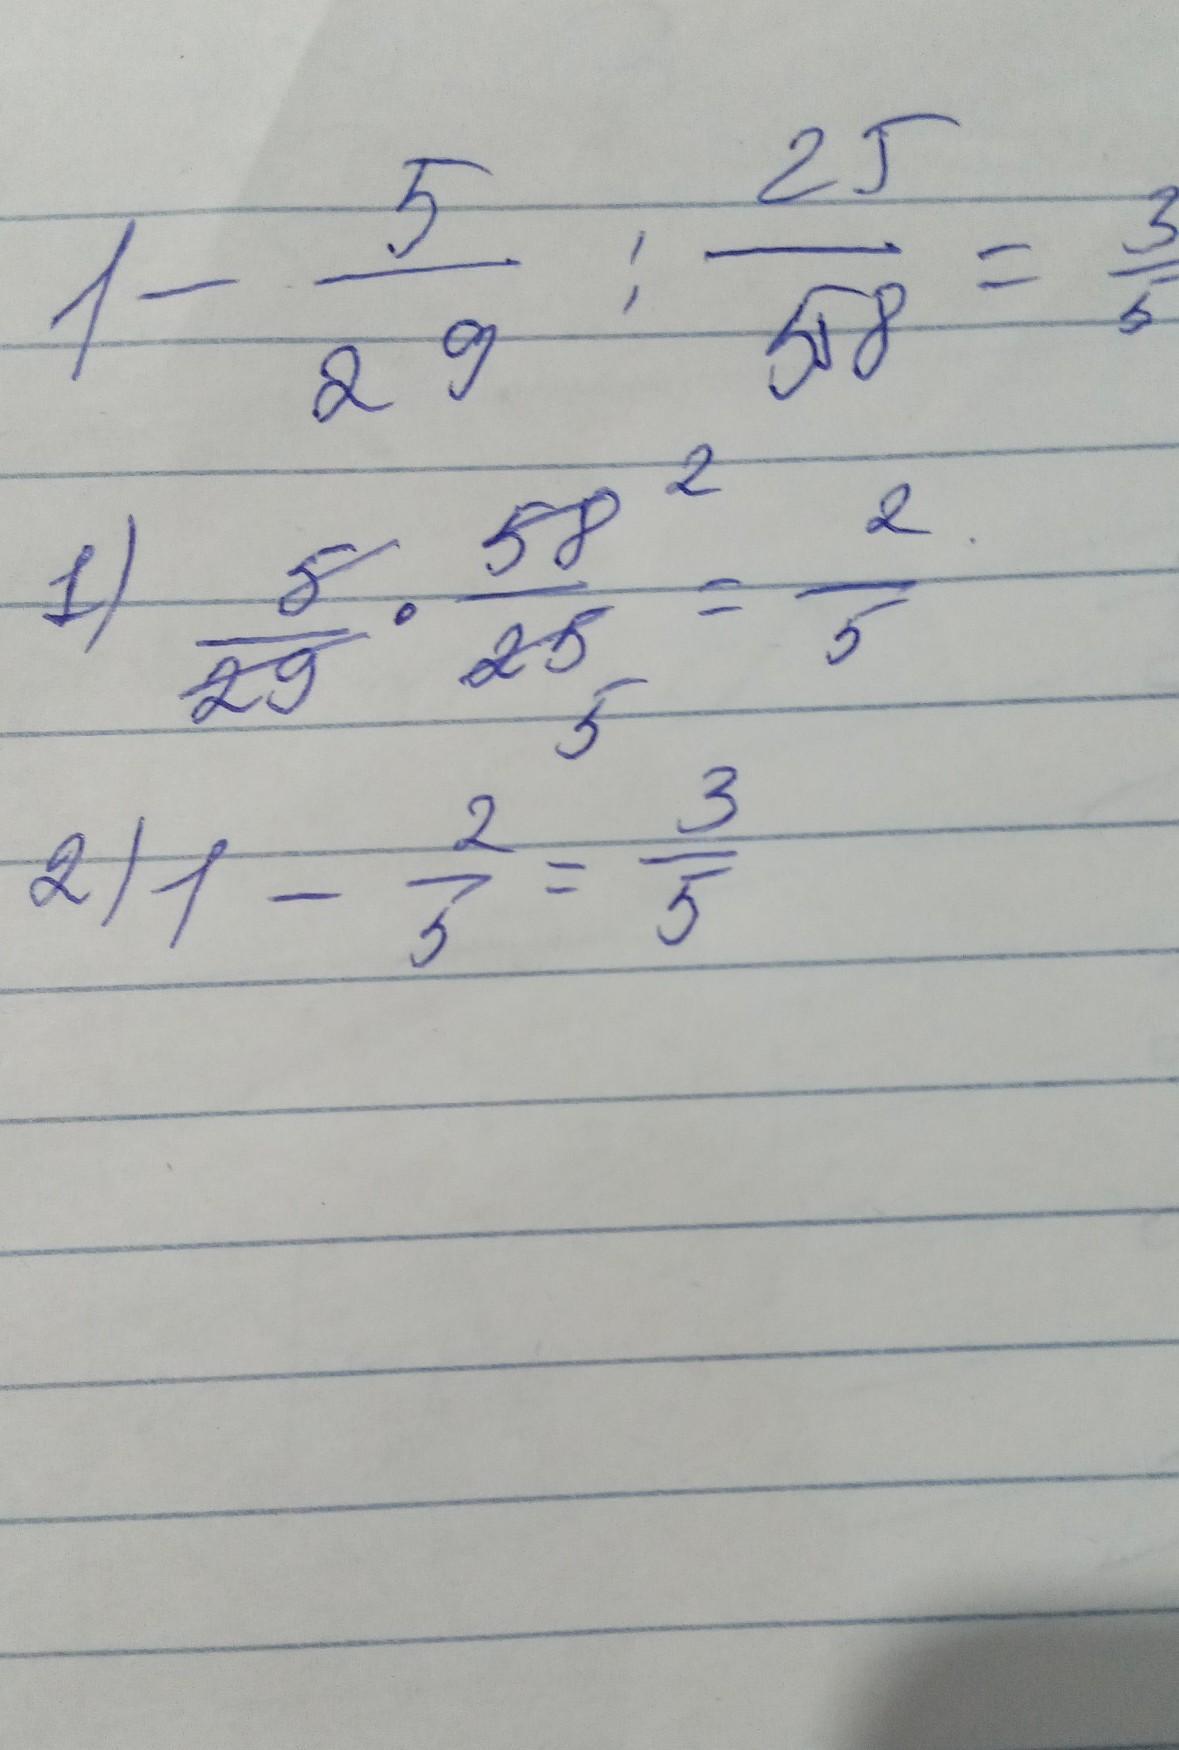 1 - 5/29 : 25/58 = 3/5
1) 5/29 · 58/25 2 5 = 2/5
2) 1 - 2/5 = 3/5